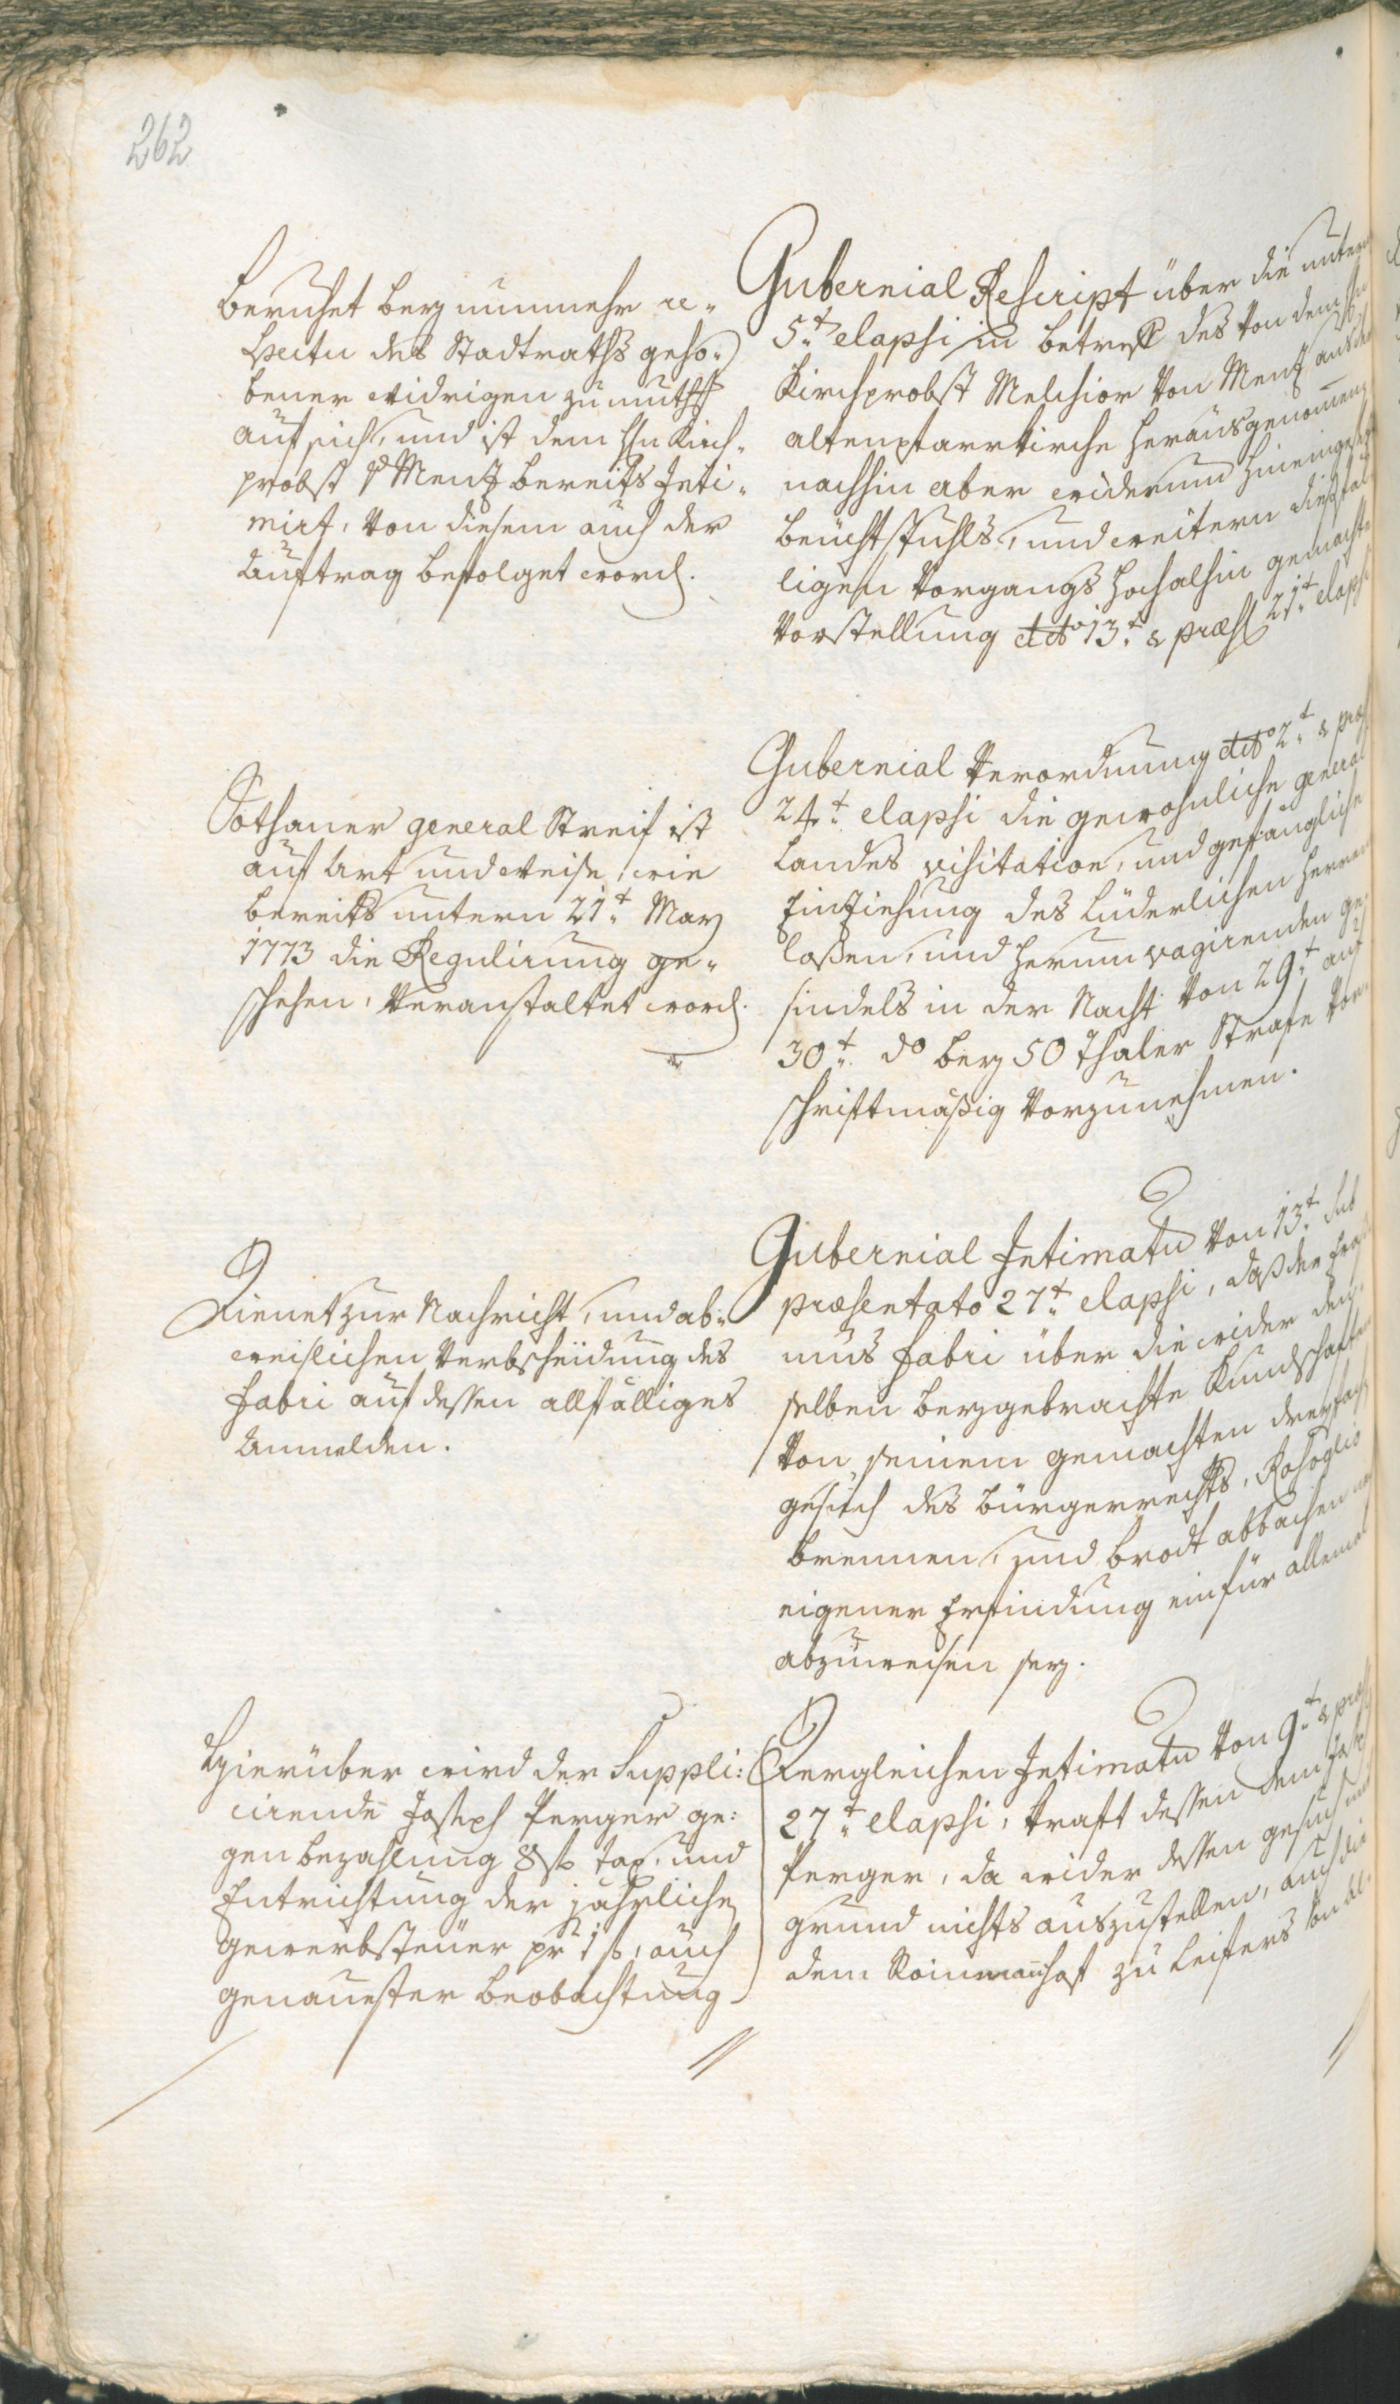 262
Beruhet bey nunmehr re-
spectu des Stadtraths geho-
bener widrigen zumuth
auf sich, und ist dem Hn Kirch-
probst v Menz bereits Inti-
mirt, von diesem auch der
Auftrag befolget word.
Gubernial Rescript über die untern
5t elapsi in betreff des von dem Hn
Kirchprobst Melchior von Menz aus der
altenpfarrkirche herausgenomenen
nachhin aber widerum hineingesezt
Beichtstuhls, und weitern dießfäl-
ligen Vorgangs hochalhin gemachte
Vorstellung ddto 13t & præs 21t elapsi
Sothaner general Streif ist
auf Art und Weise, wie
bereits untern 21t May
1773 die Regulirung ge-
schehen, veranstaltet word.
Gubernial Verordnung ddto 2t & præs
24t elapsi die gewohnliche general
Landes visitation, und gefängliche
Einziehung des Lüderlichen herren
loßen, und herum vagirenden ge-
sindels in der Nacht von 29t auf
30t do bey 50 Thaler Strafe vor-
schriftmäßig vorzunehmen.
Dienet zur Nachricht, und ab-
weislichen Verbscheidung des
Fabri auf dessen allfälliges
Anmelden.
Gubernial Intimatum von 13t sub
præsentato 27t elapsi, daß der Eraß
mus Fabri über die wider den-
selben beygebrachte Kundschaften
von seinem gemachten dreyfach
gesuch des Bürgerrechts, Rosoglio
brennen, und brodt abbachen
eigener Erfindung ein für allemal
abzuweisen sey.
Hierüber wird der Suppli:
cirende Joseph Perger ge:
gen bezahlung 8 f tax, und
Entrichtung der jährliche
gewerbsteuer pr 1 f, auch
genauester beobachtung
Dergleichen Intimatum von 9t & præs
27t elapsi, kraft dessen dem Joseph
Perger, da wider dessen gesuch mit
grund nichts auszustellen, auch die
dem Reinmannhof zu Leifers von